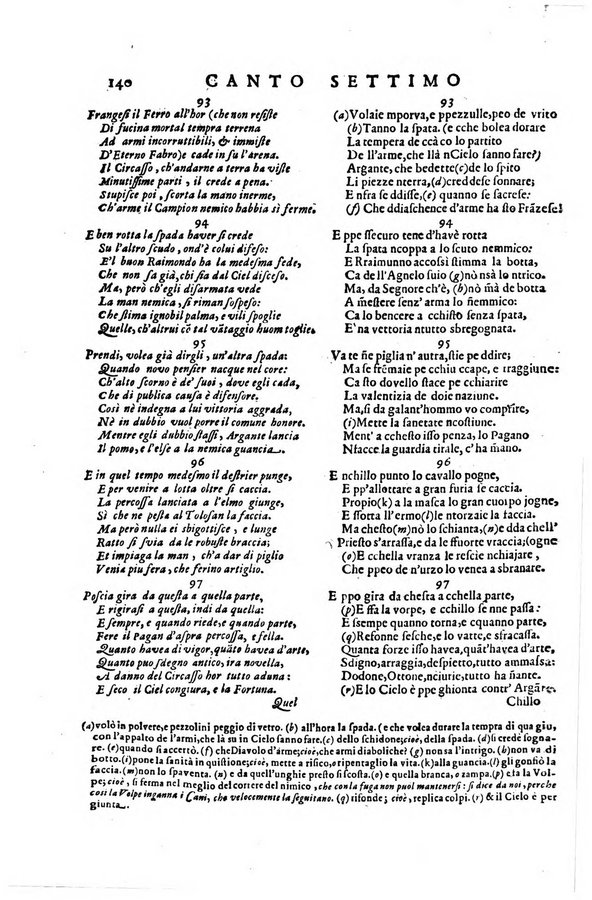 140 CANTO SETTIMO
93
Frangesi il Ferro all'hor (che non resiste
Di fucina mortal tempra terrena
Ad armi incorruttibili, & immiste
D'Eterno Fabro) e cade in su l'arena.
Il Circasso, ch'andarne a terra ha viste
Minutissime parti, il crede a pena.
Stupisce poi, scorta la mano inerme,
Ch'arme il Campion nemico habbia sì ferme.
94
E ben rotta la spada haver si crede
Su l'altro scudo, ond'è colui difeso:
E'l buon Raimondo ha la medesma fede,
Che non sa già, chi sia dal Ciel disceso.
Ma, però ch'egli disarmata vede
La man nemica, si riman sospeso:
Che stima ignobil palma, e vili spoglie
Quelle, ch'altrui cō tal vātaggio huom toglie.
95
Prendi, volea già dirgli, un'altra spada:
Quando novo pensier nacque nel core:
Ch'alto scorno è de' suoi, dove egli cada,
Che di publica causa è difensore.
Così nè indegna a lui vittoria aggrada,
Nè in dubbio vuol porre il comune honore.
Mentre egli dubbio stassi, Argante lancia
Il pomo, e l'else à la nemica guancia.
96
E in quel tempo medesmo il destrier punge,
E per venire a lotta oltre si caccia.
La percossa lanciata a l'elmo giunge,
Sì che ne pesta al Tolosan la faccia.
Ma però nulla ei sbigottisce, e lunge
Ratto si svia da le robuste braccia;
Et impiaga la man, ch'a dar di piglio
Venia più fera, che ferino artiglio.
97
Poscia gira da questa a quella parte,
E rigirasi a questa, indi da quella:
E sempre, e quando riede, e quando parte,
Fere il Pagan d'aspra percossa, e fella.
Quanto havea di vigor, quāto havea d'arte,
Quanto può sdegno antico, ira novella,
A danno del Circasso hor tutto aduna:
E seco il Ciel congiura, e la Fortuna.
Quel
93
(a)Volaie mporva, e ppezzulle, peo de vrito
(b)Tanno la spata. (e cche bolea dorare
La tempera de ccà co lo partito
De ll'arme, che llà nCielo sanno fare?)
Argante, che bedette(c) de lo spito
Li piezze nterra,(d)cred desse sonnare;
E nfra se ddisse,(e) quanno se sacrese:
(f) Che ddiaschence d'arme ha sto Frāzese!
94
E ppe ssecuro tene d'havè rotta
La spata ncoppa a lo scuto nemmico:
E Rraimunno accossì stimma la botta,
Ca de ll'Agnelo suio (g)nò nsà lo ntrico.
Ma, da Segnore ch'è, (h)nō m̄a de botta
A mestere senz'arma lo ñemmico:
Ca lo bencere a cchisto senza spata,
E' na vettoria ntutto sbregognata.
95
Va te ñe piglia n'autra, stie pe ddire;
Ma se frēmaie pe cchiu ccape, e traggiune:
Ca sto dovello stace pe cchiarire
La valentizia de doie naziune.
Ma, si da galant'hommo vo comprīre,
(i)Mette la sanetate ncostiune.
Ment' a cchesto isso penza, lo Pagano
Nfacce la guardia tirale, c'ha m̄ano.
96
E nchillo punto lo cavallo pogne,
E pp'allottare a gran furia se caccia.
Propio(k) a la masca lo gran cuorpo jogne,
E ssorta ll'ermo(l)e ntorzaie la faccia:
Ma chesto(m) nò lo schianta,(n)e dda chell' ogne
Priesto s'arrassa, e da le smorte vraccia;
(o)E cchella vranza le resce nchiajare,
Che ppeo de n'urzo lo volea afferrare.
97
E ppo gira da chesta a cchella parte,
(p)E ssa la vorpe, e cchillo se nne passa:
E ssempe quanno torna, e cquanno parte,
(q)Refonne sesche, e lo vatte, e sfracassa.
Quanta forze isso havea, quāt'havea d'arte,
Sdigno, arraggia, despietto, tutto ammassa:
Dodone, Ottone, nciurie, tutto ha mente,
(r)E lo Cielo è ppe ghionta contr' Argāte.
Chillo
(a)volò in polvere, e pezzolini peggio di vetro. (b) all'hora la spada. (e che volea durare la tempra di qua giu,
con l'appalto de l'armi, che là su in Cielo sanno fare.(c) dello schidone; cioè, della spada. (d)si credè sognare.
(e)quando si accertò. (f) che Diavolo d'arme; cioè, che armi diaboliche? (g) non sa l'intrigo. (h) non va di
botto.(i)pone la sanità in quistione; cioè, mette a risico, e ripentaglio la vita.(k)alla guancia.(l) gli gonfiò la
faccia.(m) non lo spaventa. (n) e da quell'unghie presto si scosta.(o)e quella branca, o zampa.(p)e fa la Vol-
pe; cioè, si ferma nel meglio del correre del nimico, che con la fuga non può mantenersi: si dice da noi, perche
così la Volpe inganna i Cani, che velocemente la seguitano. (q) rifonde; cioè, replica colpi. (r) & il Cielo è per
giunta.